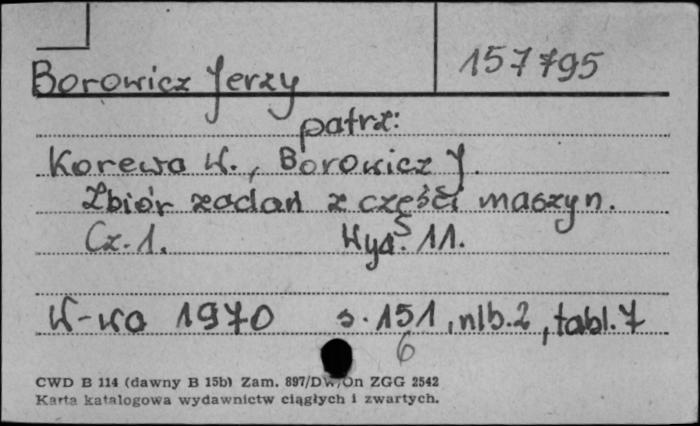 157795
Borowicz Jerzy
patrz:
Korewa W., Borowicz J.
Zbiór zadań z części maszyn.
Cz. 1. Wyd. 11.
W-wa 1970 s. 151, nlb. 2, tabl. 7
6
CWD B 114 (dawny B 15b) Zam. 897/DW/On ZGG 2542
Karta katalogowa wydawnictw ciągłych i zwartych.